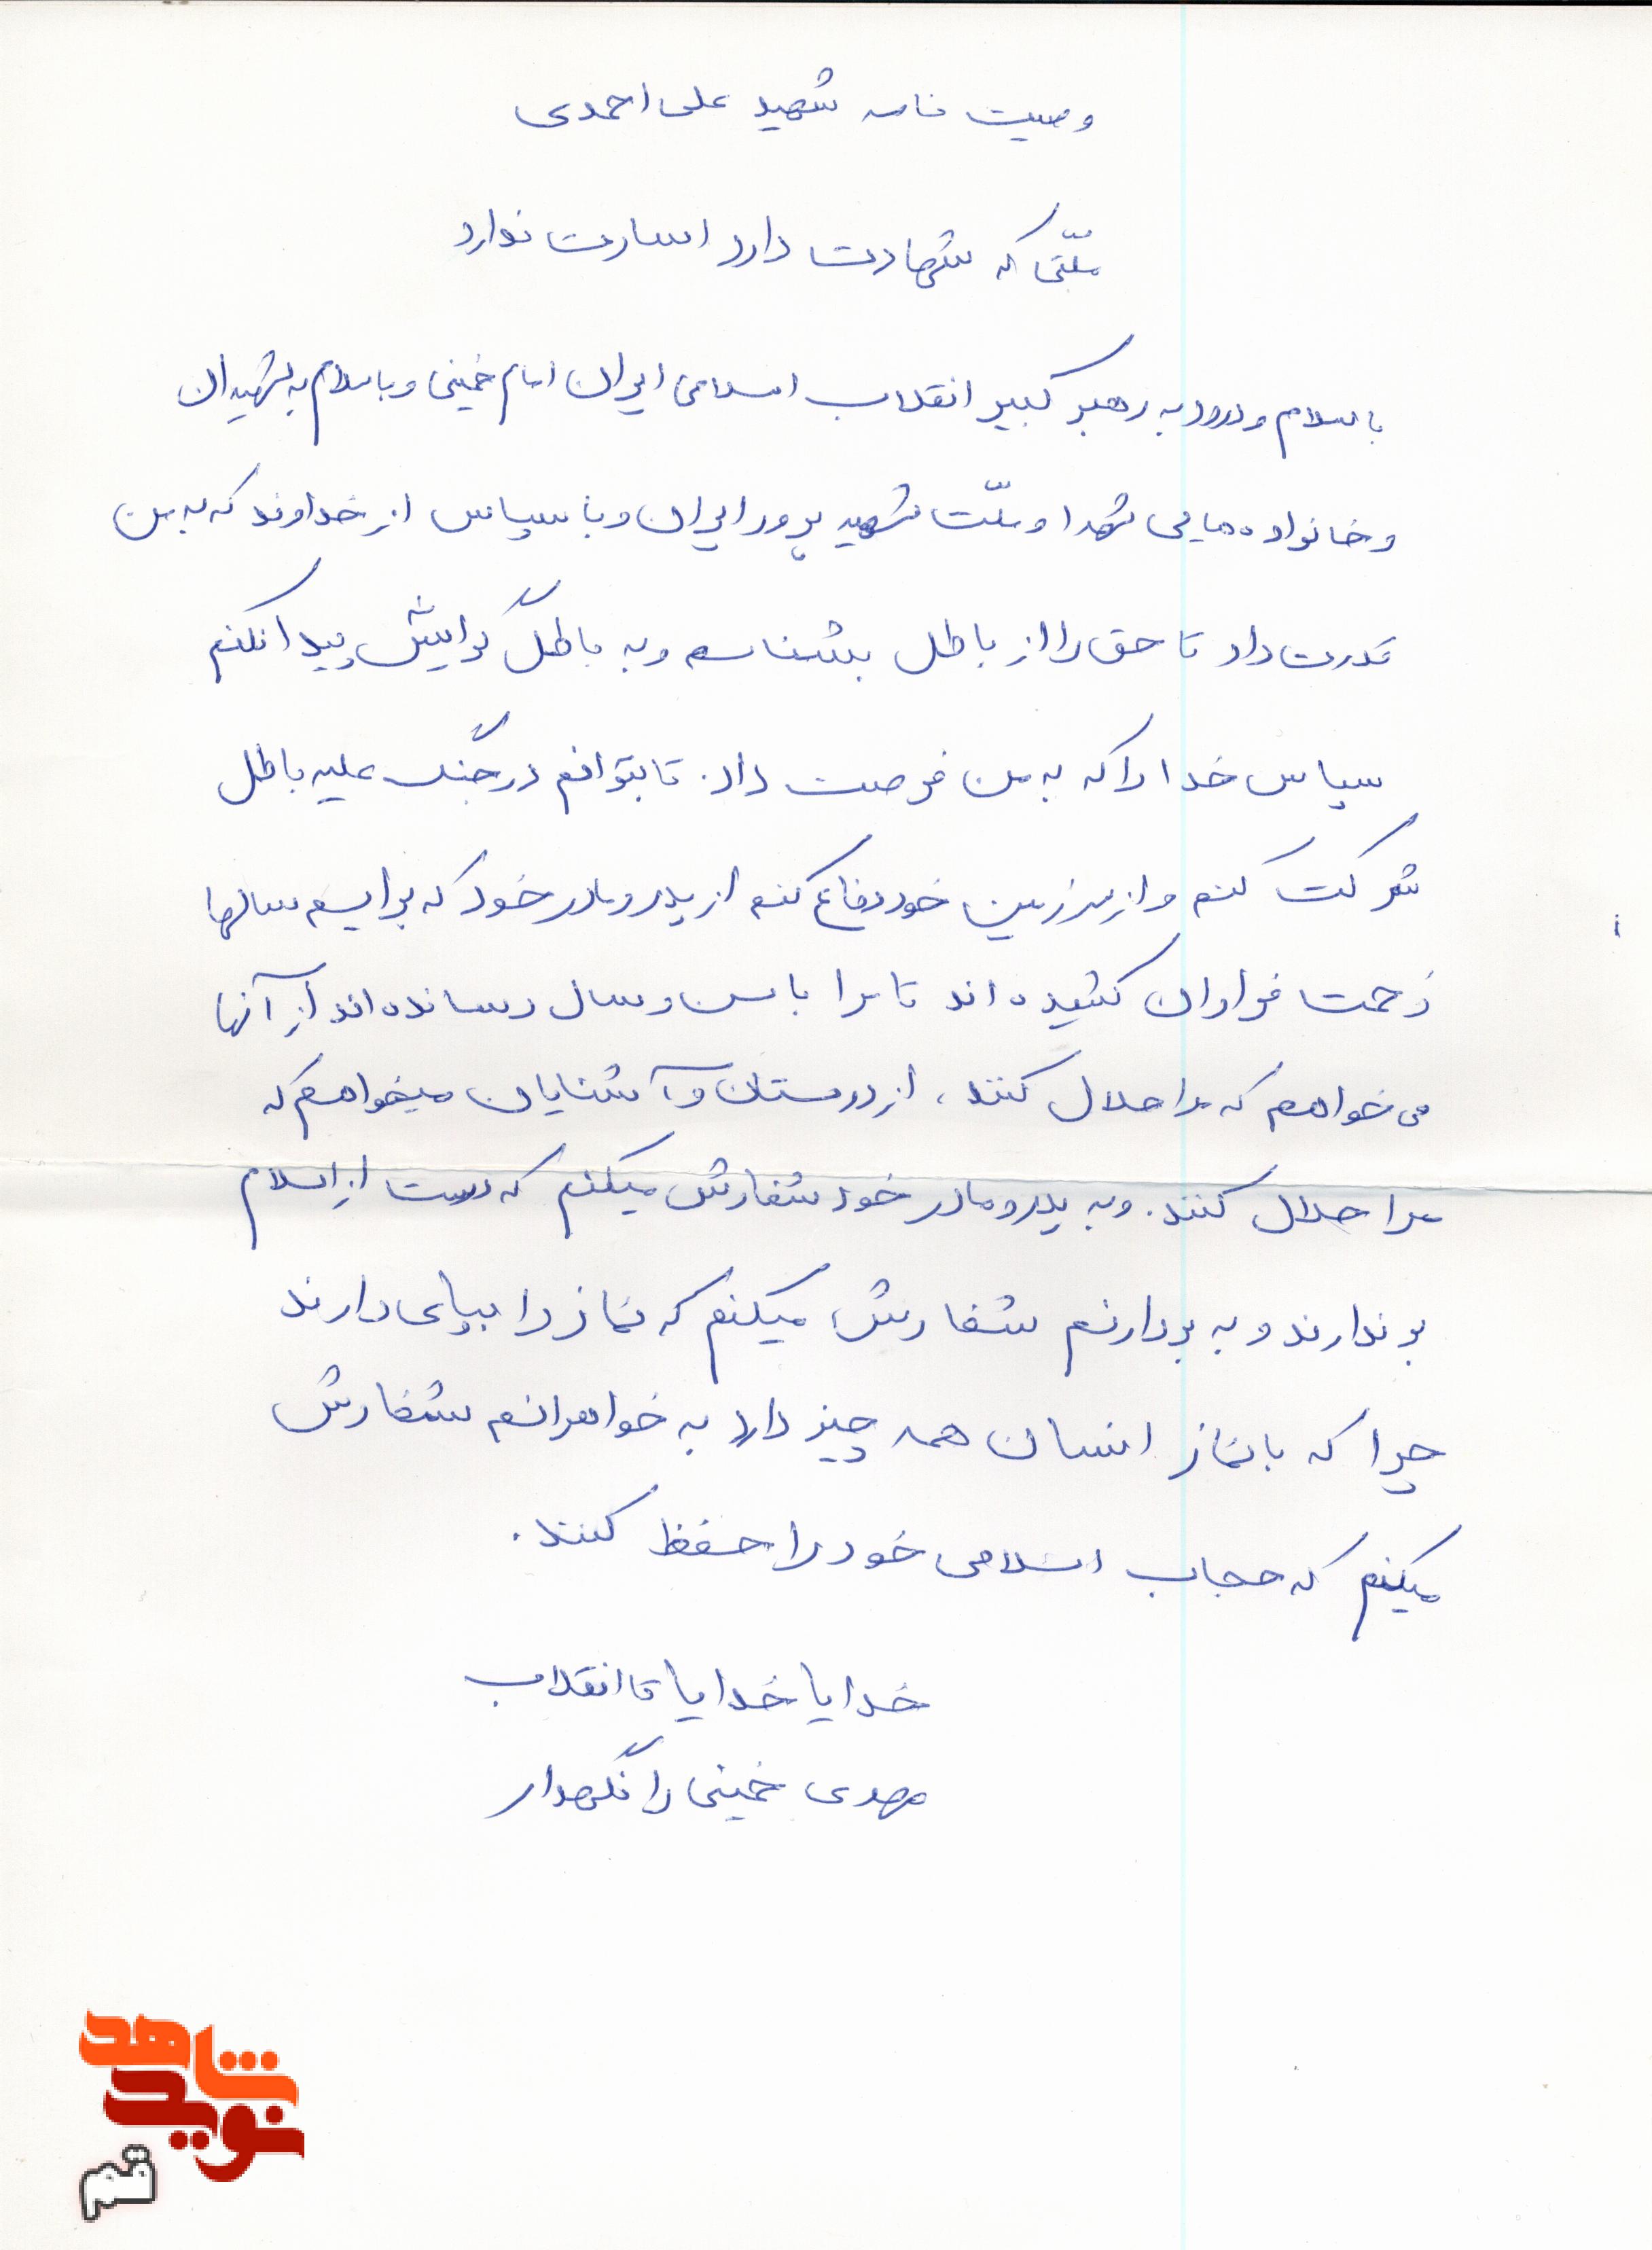 وصیت نامه شهید علی احمدی
ملّتی که شهادت دارد اسارت ندارد
باسلام و درود به رهبر کبیر انقلاب اسلامی ایران امام خمینی و باسلام به شهیدان
و خانواده هایی شهدا و ملّت شهید پرور ایران و با سپاس از خداوند که به من
قدرت داد تا حق را از باطل بشناسم و به باطل گرایش پیدا نکنم
سپاس خدا را که به من فرصت داد. تا بتوانم در جنگ علیه باطل
شرکت کنم و از سرزمین خود دفاع کنم از پدر و مادر خود که برایم سالها
زحمت فراوان کشیده اند تا مرا باسن و سال رسانده اند از آنها
می خواهم که مرا حلال کنند، از دوستان و آشنایان میخواهم که
مرا حلال کنند. و به پدر و مادر خود سفارش میکنم که دست از اسلام
بر ندارند و به برادرنم سفارش میکنم که نماز را بپای دارند
چرا که با نماز انسان همه چیز دارد به خواهرانم سفارش
میکنم که حجاب اسلامی خود را حفظ کنند.
خدایا خدایا تا انقلاب
مهدی خمینی را نگهدار
شاهد
نوید
قم